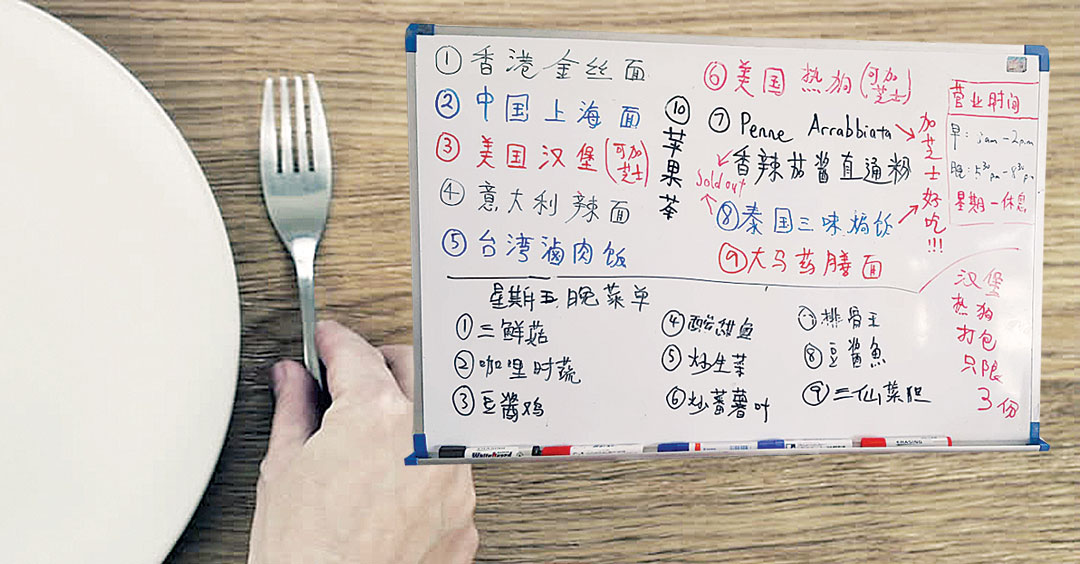 ① 香港金丝面
② 中国上海面
③ 美国汉堡(可加芝士)
④ 意大利辣面
⑤ 台湾滷肉饭
⑩ 苹果茶
⑥ 美国热狗(可加芝士)
⑦ Penne Arrabbiata
香辣茄酱直通粉
Sold out
⑧ 泰国三味焗饭
⑨ 大马药膳面
加芝士好吃!!!
营业时间
早:
晚: 5³⁰pm-8³⁰p
星期一休息
汉堡
热狗
打包
只限
3份
星期五晚菜单
① 三鲜菇
② 咖哩时蔬
③ 豆酱鸡
④ 酸甜鱼
⑤ 炒生菜
⑥ 炒蕃薯叶
排骨王
⑧ 豆酱魚
⑨ 三仙菜胆
WhiteBoard